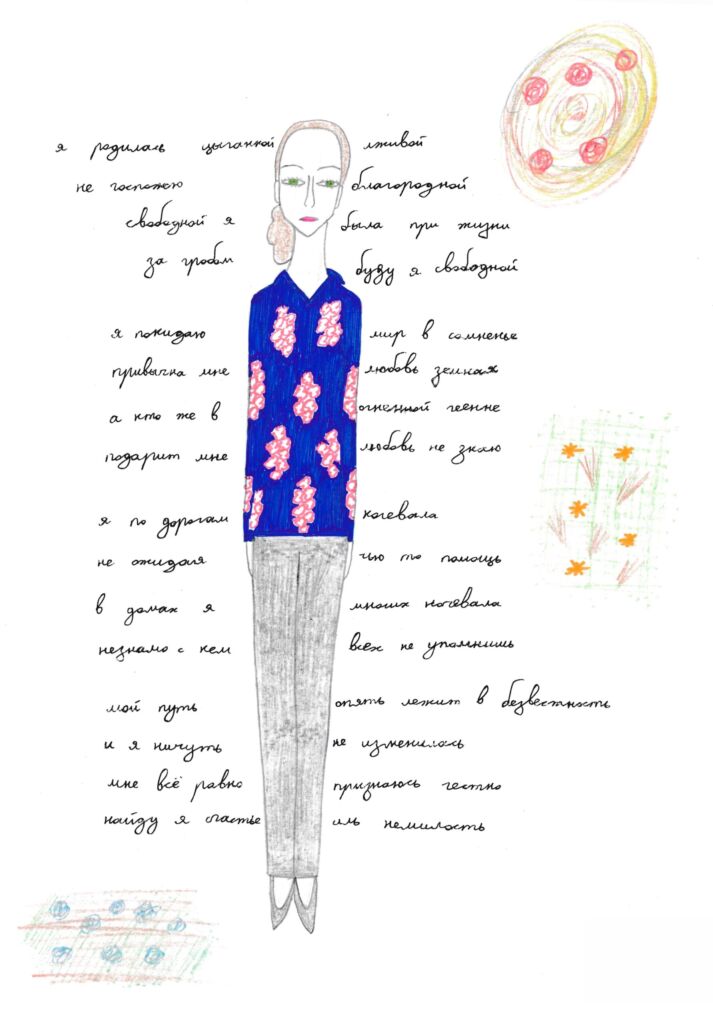 я родилась цыганкой лживой
не госпожою благородной
свободной я была при жизни
за гробом буду я свободной
я покидаю мир в сомненье
привычна мне любовь земная
а кто же в огненной геенне
подарит мне любовь не знаю
я по дорогам кочевала
не ожидая чью то помощь
в домах я многих ночевала
незнамо с кем всех не упомнишь
мой путь опять лежит в безвестность
и я ничуть не изменилась
мне всё равно признаюсь честно
найду я счастье иль немилость